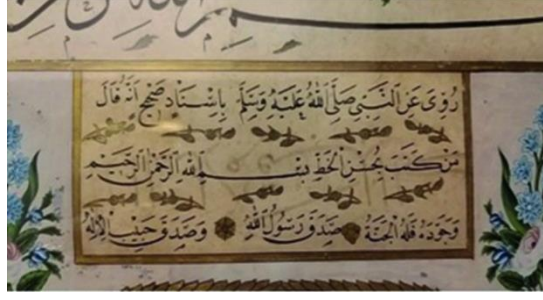 رُوِىَ عَنِ النَّبِيِّ صَلَّى اللهُ عَلَيْهِ وَسَلَّمَ بِاِسْنَادٍ صَحِيحٍ اَنَّهُ قَالَ
مَنْ كَتَبَ بِحُسْنِ الْخَطِّ بِسْمِ اللهِ الرَّحْمٰنِ الرَّحِيمِ
وَجَوَّدَهُ فَلَهُ الْجَنَّةُ صَدَقَ رَسُولُ اللهِ وَصَدَقَ حَبِيبُ الْاِلٰهِ